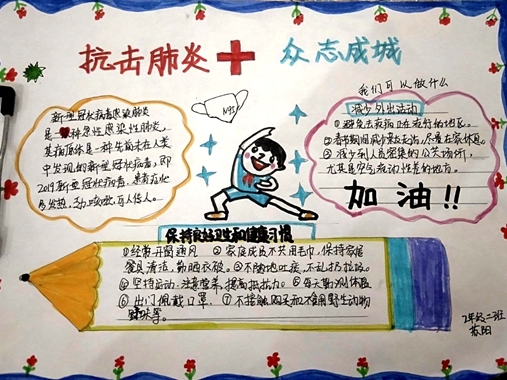 抗击肺炎 众志成城
新型冠状病毒感染肺炎
是一种急性感染性肺炎,
其病原体是一种先前未在人类
中发现的新型冠状病毒,即
2019新型冠状病毒,患者
发热,
N95
我们可以做什么
减少外出活动
①避免去疾病正在流行的地区。
②春节期间减少走亲访友,尽量在家休息。
③减少到人员密集的公共场所,
尤其是空气流动性差的地方。
加油!!
保持良好卫生和健康习惯
①经常开窗通风 ②家庭成员不共用毛巾,保持家居
餐具清洁,勤晒衣被。③不随地吐痰,不乱扔垃圾。
④坚持运动,注意营养,提高抵抗力。⑤每天勤测体温
⑥出门佩戴口罩,⑦不接触购买和食用野生动物
野味等。
2年级二班